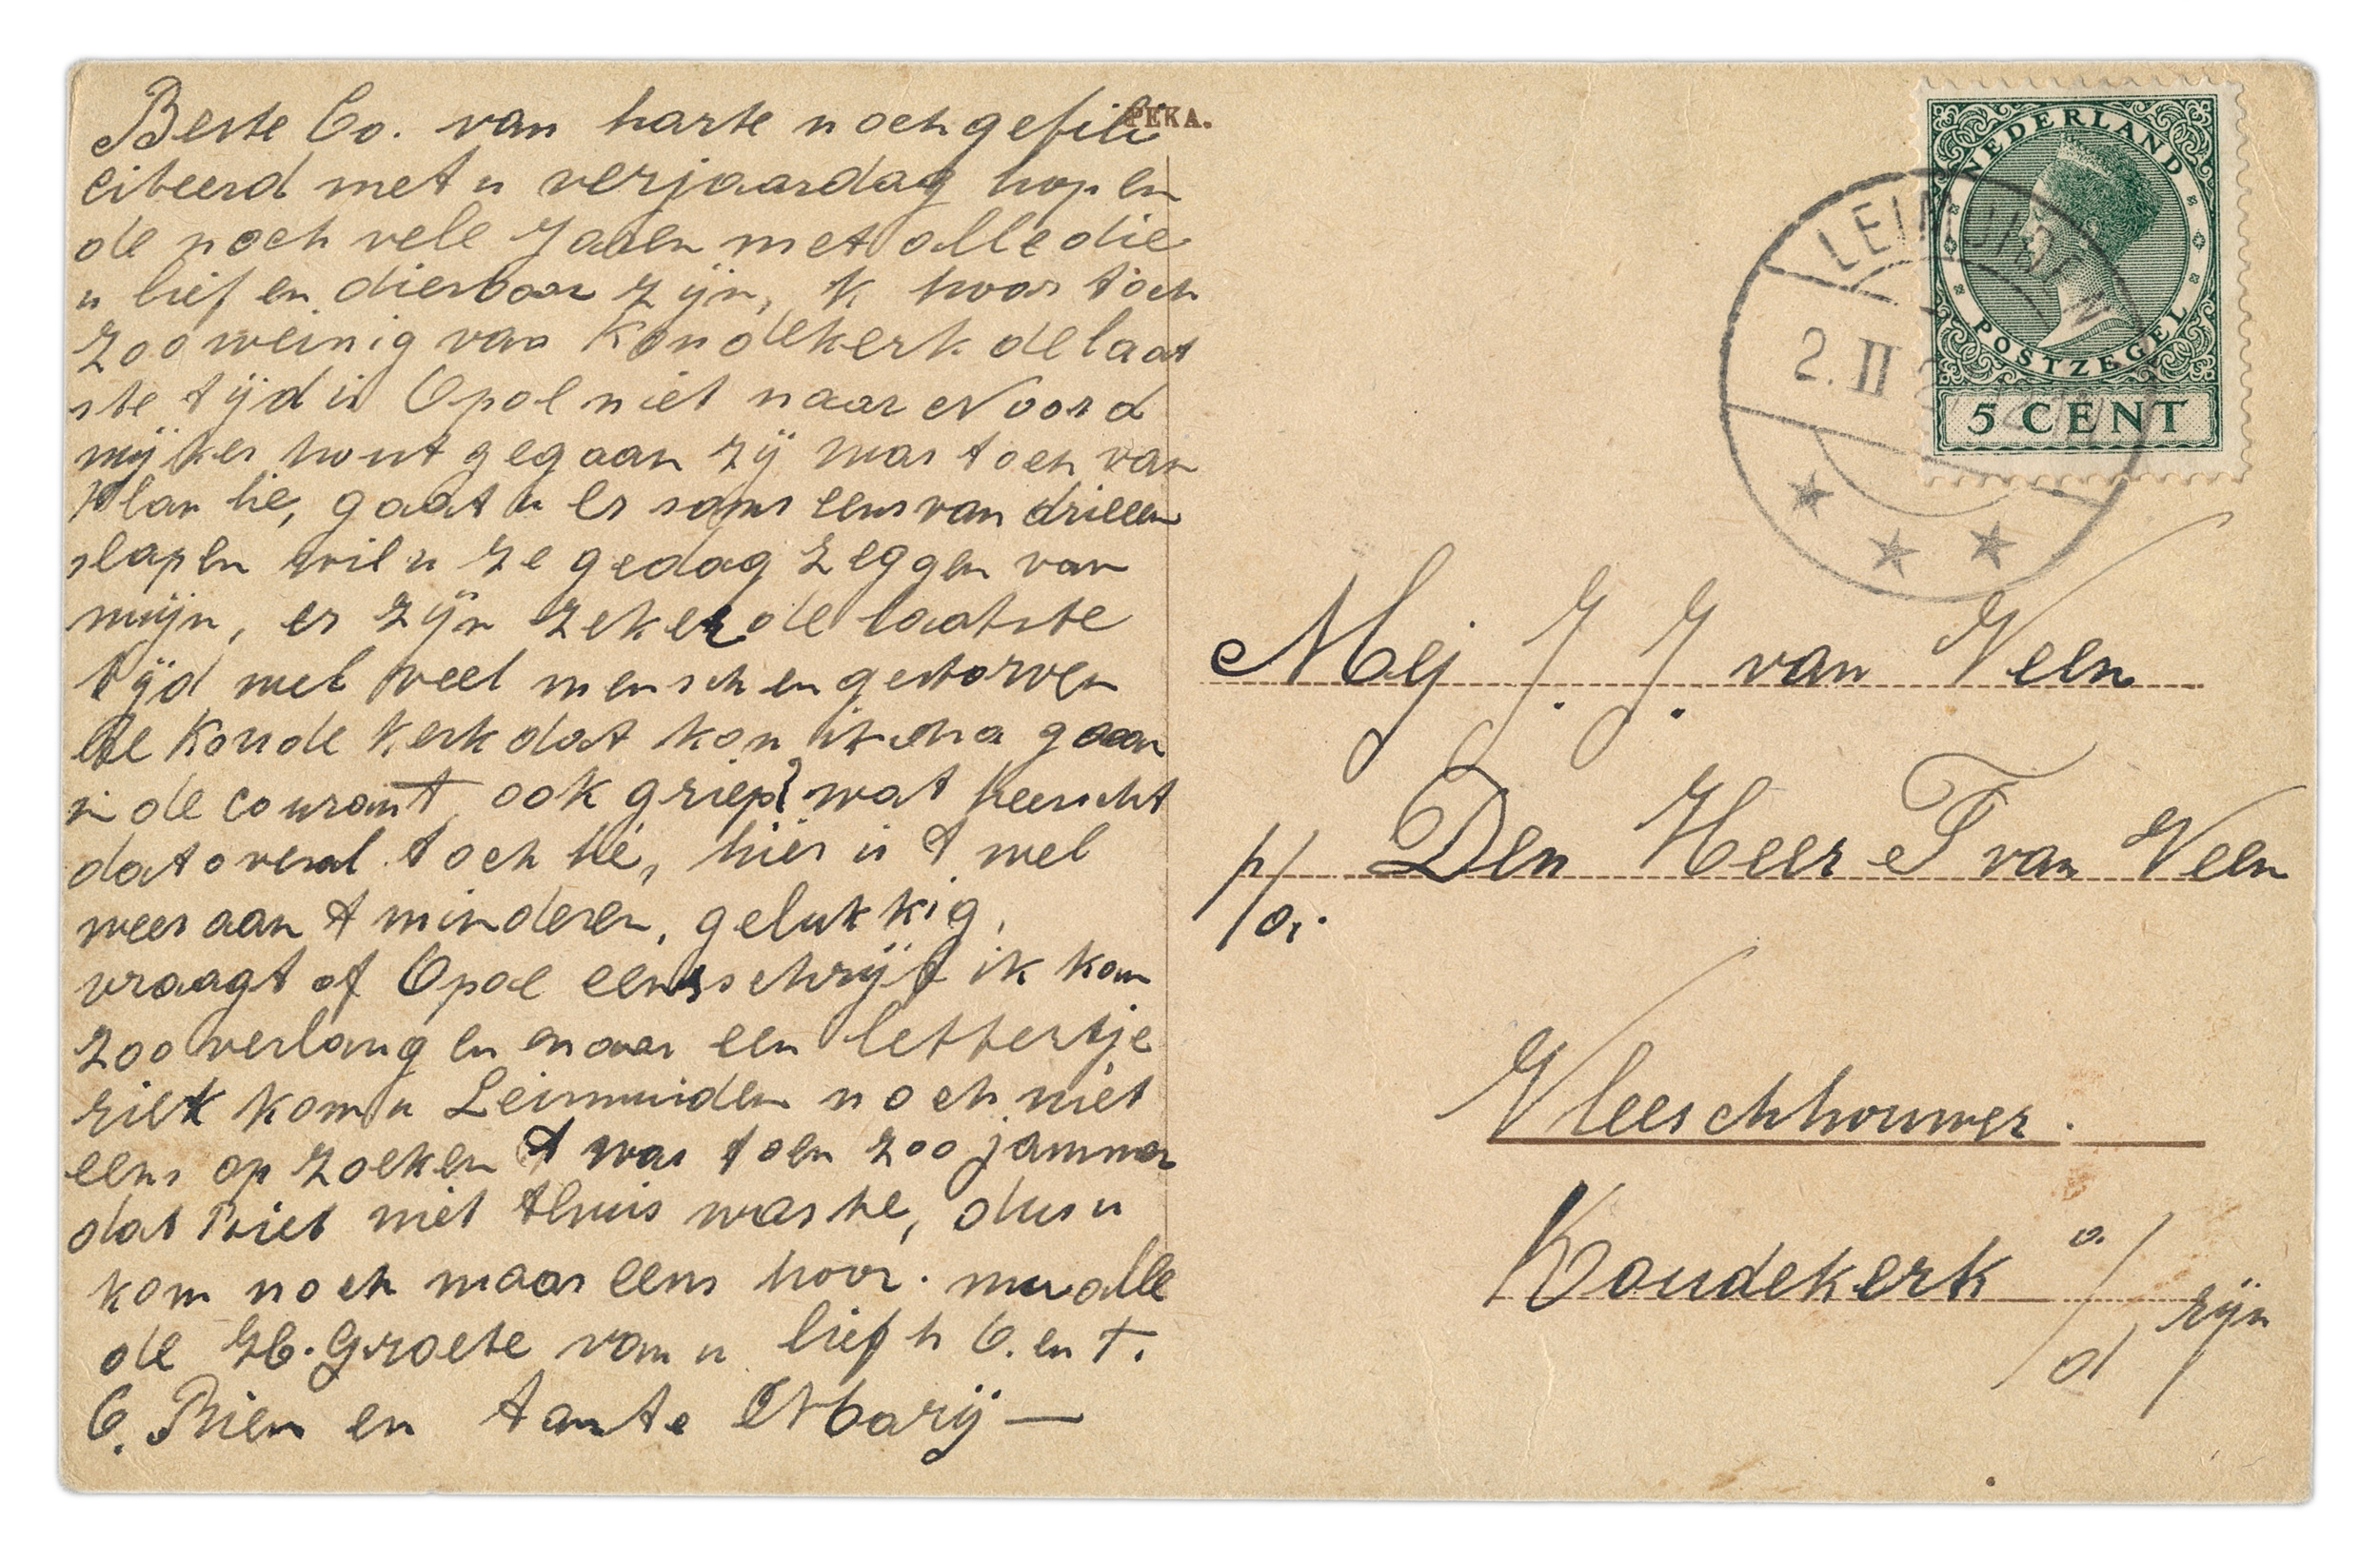 Beste Co. van harte noch gefili
citeerd met u verjaardag hopen
de noch vele Jaaen met alle die
u lief en dierbaar zijn, k hoor toch
zoo weinig van Koudekerk de laat
ste tijd is Opoe niet naar Noord
wijkerhout gegaan zij was toen van
plan hè, gaat u er soms eens van drieen
slapen wil u ze gedag zeggen van
mijn, er zijn zeker de laatste
tijd wel veel menschen gestorven
te Koudekerk dat kon ik na gaan
in de courant, ook griep? wat heerscht
dat overal toch hè, hier is t wel
weer aan t minderen, gelukkig,
vraagt of Opoe eens schrijft ik kan
zoo verlangen naar een lettertje
riek kom u Leimuiden noch niet
eens op zoeken t was toen zoo jammer
dat niet thuis was hè, dus u
kom noch maar eens hoor. nu alle
de Hb. Groete van u liefh O. en T.
O. Rien en tante Marij —
PEKA.
NEDERLAND
POSTZEGEL
5 CENT
LEIMUIDEN
2. II
Mej J. J. van Veen
p/a. Den Heer T van Veen
Vleeschhouwer.
Koudekerk a/d rijn